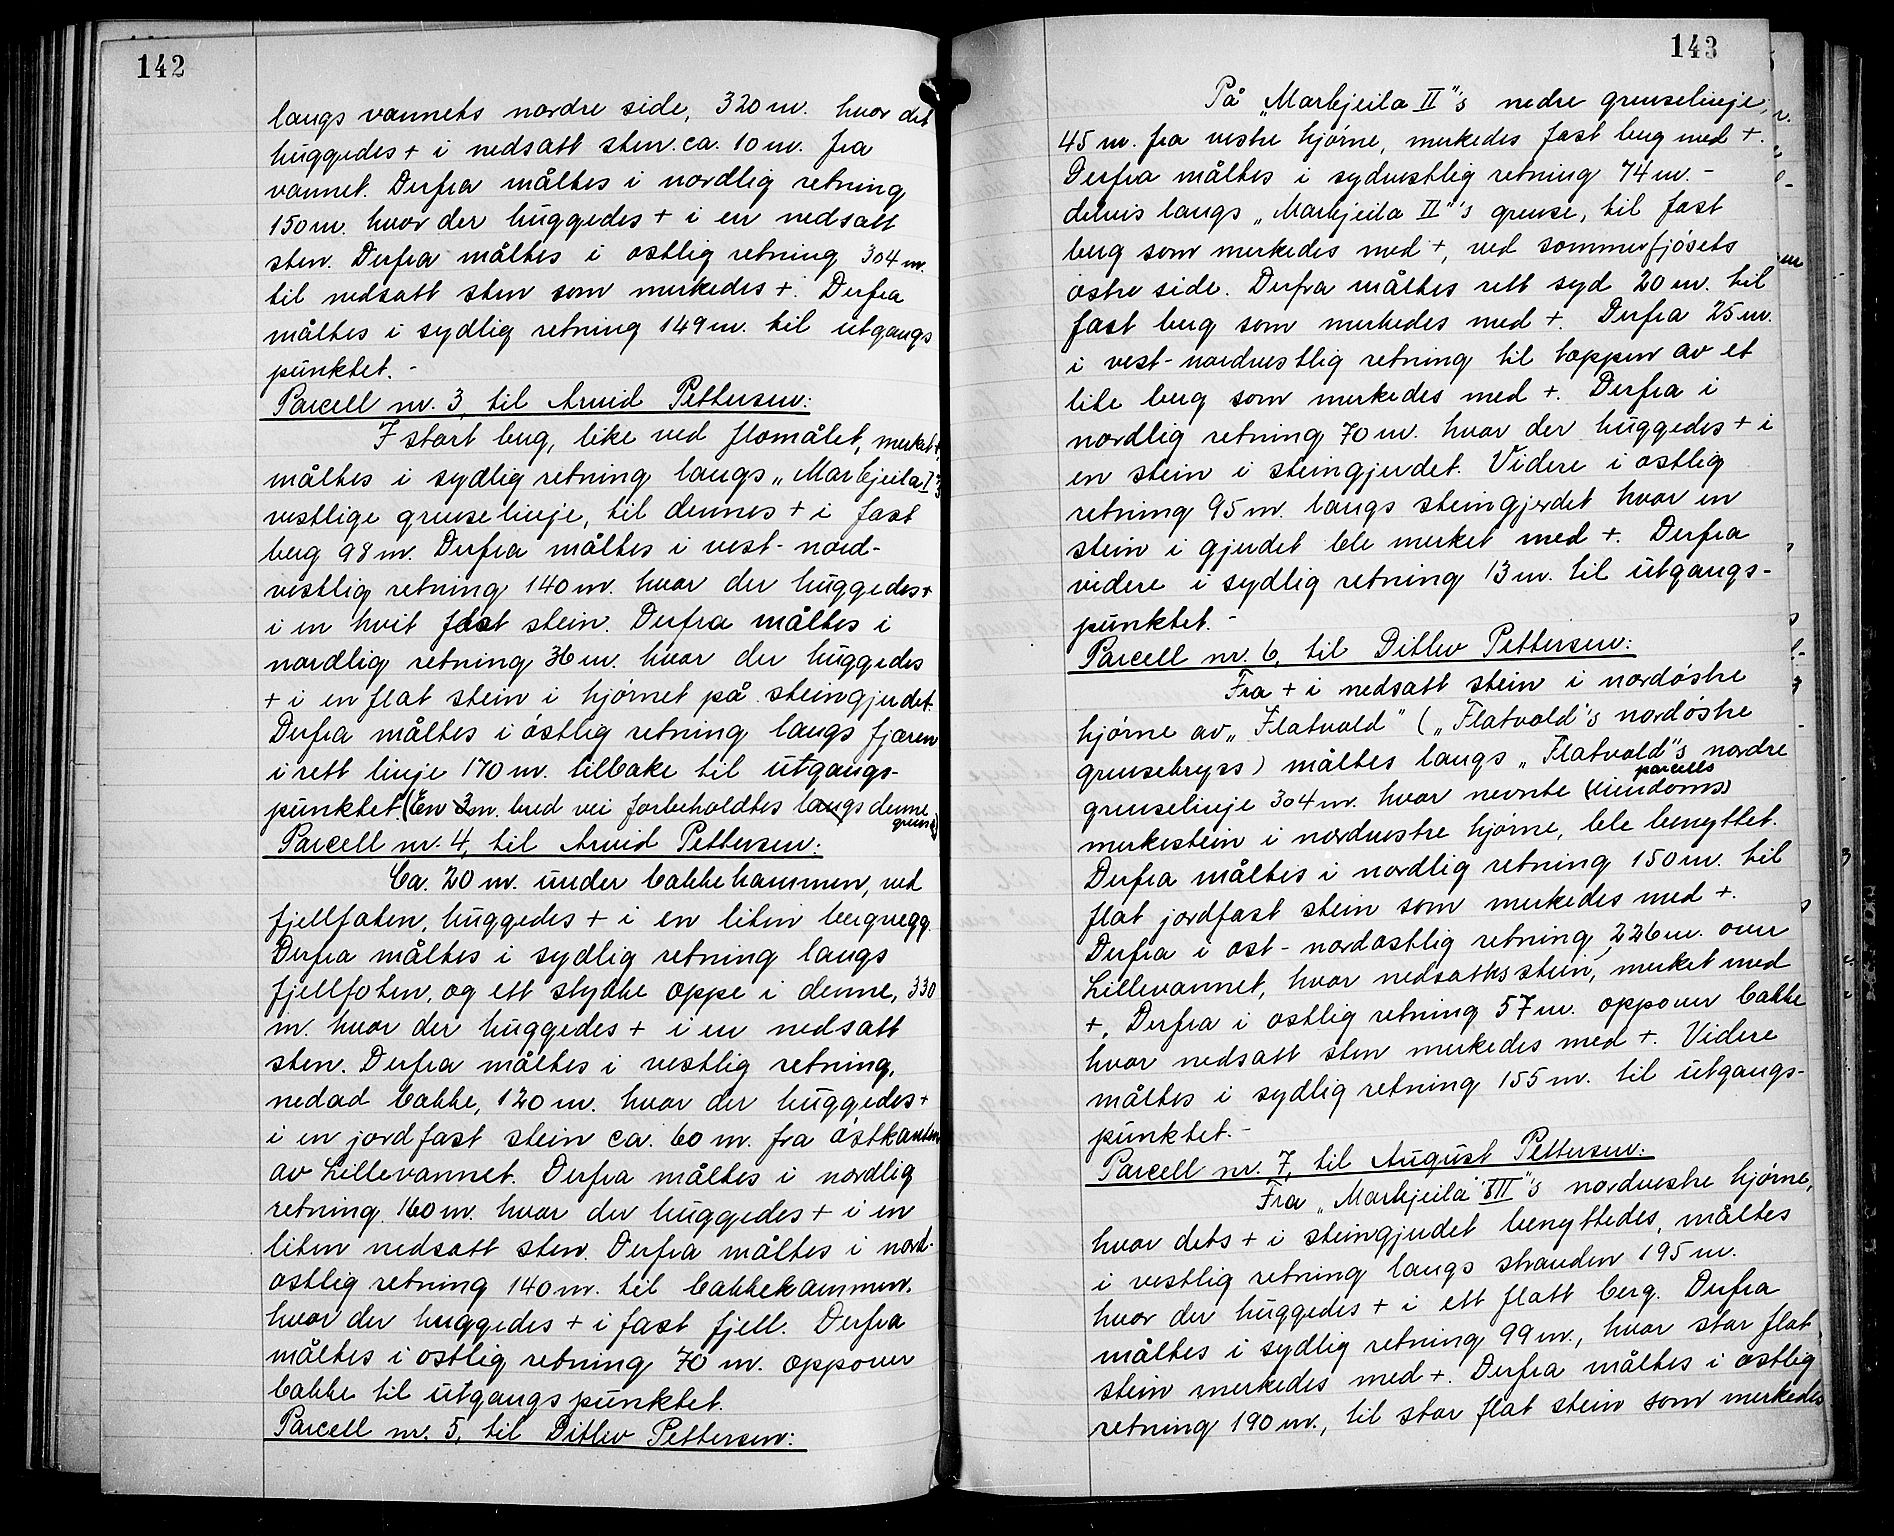 142
langs vannets nordre side, 320 m. hvor det
huggedes + i nedsatt sten. ca. 10 m. fra
vannet. Derfra måltes i nordlig retning
150 m. hvor der huggedes + i en nedsatt
sten. Derfra måltes i østlig retning 304 m.
til nedsatt sten som merkedes +. Derfra
måltes i sydlig retning 149 m. til utgangs
punktet. -
Parcell nr. 3, til Arvid Pettersen:
I stort berg, like ved flomålet, merket +,
måltes i sydlig retning langs „Markjeila I"s
vestlige grenselinje, til dennes + i fast
berg 98 m. Derfra måltes i vest-nord-
vestlig retning 140 m. hvor der huggedes +
i en hvit fast stein. Derfra måltes i
nordlig retning 36 m. hvor der huggedes
+ i en flat stein i hjørnet på steingjerdet.
Derfra måltes i østlig retning langs fjæren
i rett linje 170 m. tilbake til utgangs-
punktet. (En 3 m. bred vei forbeholdtes langs denne
grense)
Parcell nr. 4, til Arvid Pettersen:
Ca. 20 m. under bakkekammen, ved
fjellfoten, huggedes + i en liten bergvegg.
Derfra måltes i sydlig retning langs
fjellfoten, og ett stykke oppe i denne, 330
m. hvor der huggedes + i en nedsatt
sten. Derfra måltes i vestlig retning,
nedad bakke, 120 m. hvor der huggedes +
i en jordfast stein ca. 60 m. fra østkanten
av Lillevannet. Derfra måltes i nordlig
retning 160 m. hvor der huggedes + i en
liten nedsatt sten. Derfra måltes i nord-
østlig retning 140 m. til bakkekammen.
hvor der huggedes + i fast fjell. Derfra
måltes i østlig retning 70 m. oppover
bakke til utgangspunktet.
Parcell nr. 5, til Ditlev Pettersen:
143
På „Markjeila II"s nedre grenselinje,
45 m. fra vestre hjørne, merkedes fast berg med +.
Derfra måltes i sydvestlig retning 74 m. -
delvis langs „Markjeila II"s grense, til fast
berg som merkedes med +, ved sommerfjøsets
østre side. Derfra måltes rett syd 20 m. til
fast berg som merkedes med +. Derfra 25 m.
i vest-nordvestlig retning til toppen av et
lite berg som merkedes med +. Derfra i
nordlig retning 70 m. hvor der huggedes + i
en stein i steingjerdet. Videre i østlig
retning 95 m. langs steingjerdet hvor en
stein i gjerdet ble merket med +. Derfra
videre i sydlig retning 13 m. til utgangs-
punktet. -
Parcell nr. 6, til Ditlev Pettersen:
Fra + i nedsatt stein i nordøstre
hjørne av „Flatvold" („Flatvold"s nordøstre
grensekryss) måltes langs „Flatvold"s nordre
parcells
grenselinje 304 m. hvor nevnte (eiendoms)
merkestein i nordvestre hjørne, ble benyttet.
Derfra måltes i nordlig retning 150 m. til
flat jordfast stein som merkedes med +.
Derfra i øst-nordøstlig retning 226 m. over
Lillevannet, hvor nedsattes stein, merket med
+. Derfra i østlig retning 57 m. oppover bakke
hvor nedsatt sten merkedes med +. Videre
måltes i sydlig retning 155 m. til utgangs-
punktet. -
Parcell nr. 7, til August Pettersen:
Fra „Markjeila III"s nordvestre hjørne,
hvor dets + i steingjerdet benyttedes, måltes
i vestlig retning langs stranden 195 m.
hvor der huggedes + i ett flatt berg. Derfra
måltes i sydlig retning 99 m., hvor stor flat
stein merkedes med +. Derfra måltes i østlig
retning 190 m., til stor flat stein som merkedes